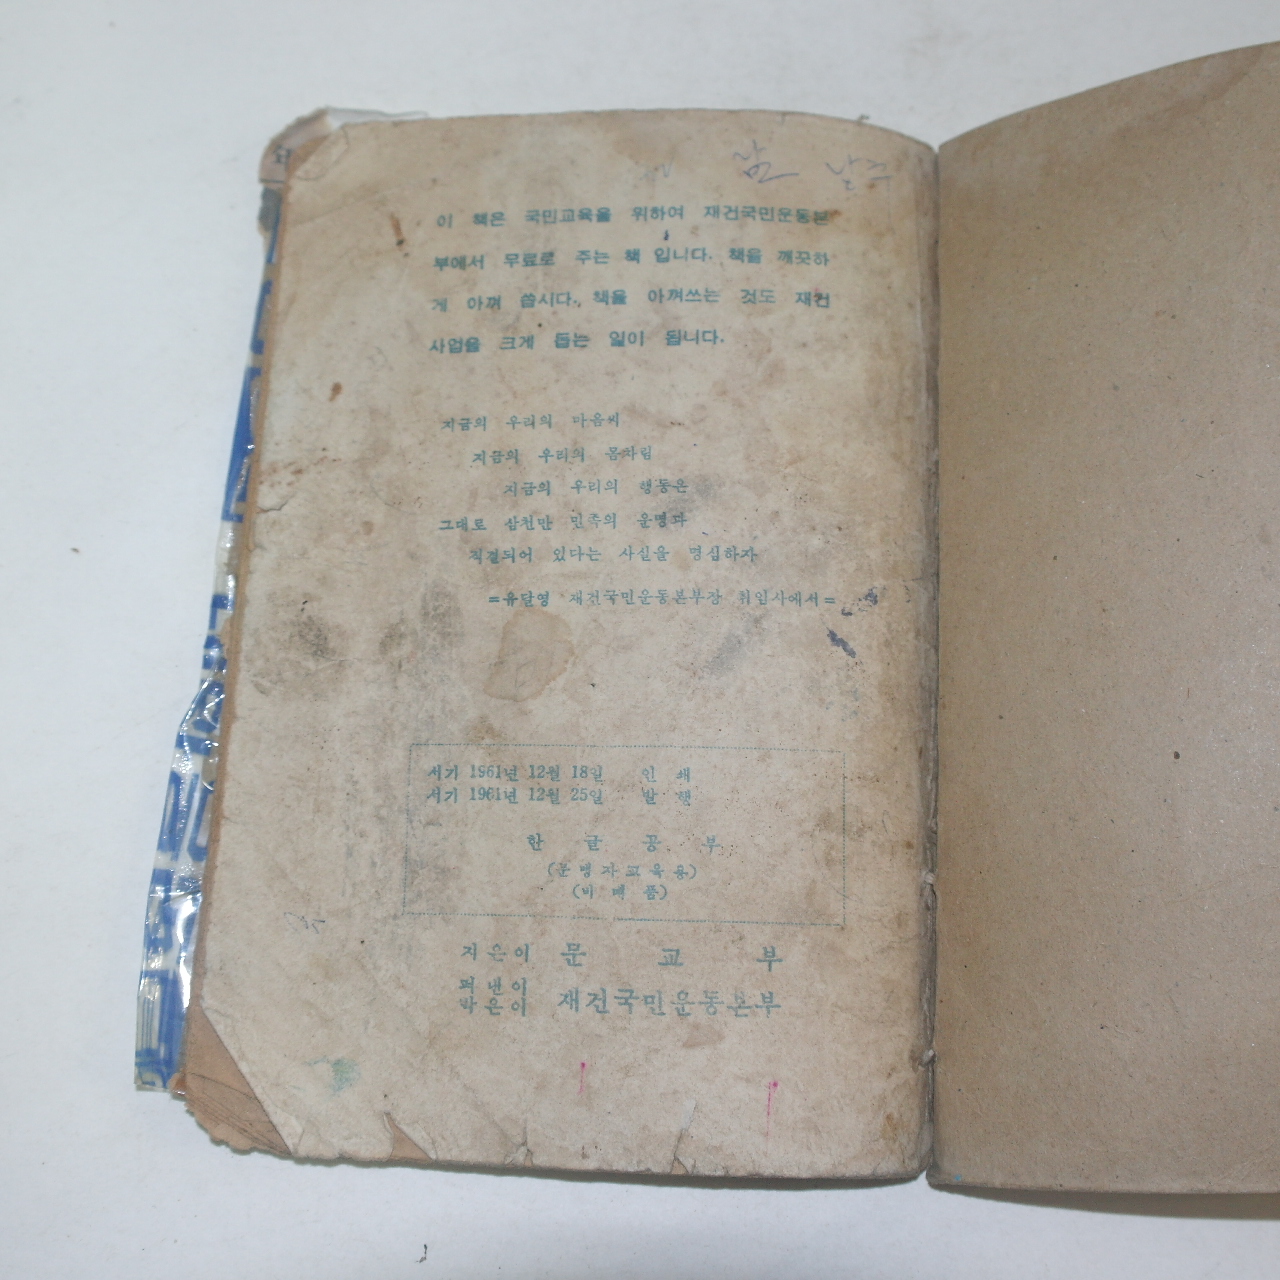 이 책은 국민교육을 위하여 재건국민운동본
부에서 무료로 주는 책 입니다. 책을 깨끗하
게 아껴 씁시다. 책을 아껴쓰는 것도 재건
사업을 크게 돕는 일이 됩니다.
지금의 우리의 마음씨
지금의 우리의 몸차림
지금의 우리의 행동은
그대로 삼천만 민족의 운명과
직결되어 있다는 사실을 명심하자
=유달영 재건국민운동본부장 취임사에서=
서기 1961년 12월 18일 인 쇄
서기 1961년 12월 25일 발 행
한 글 공 부
(문맹자교육용)
(비매품)
지은이 문 교 부
펴낸이
박은이 재건국민운동본부